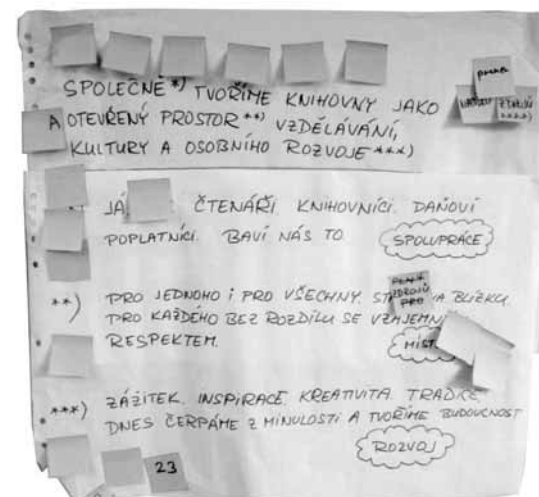 SPOLEČNĚ*) TVOŘÍME KNIHOVNY JAKO
A OTEVŘENÝ PROSTOR**) VZDĚLÁVÁNÍ,
KULTURY A OSOBNÍHO ROZVOJE***)
ZDROJŮ
****)
JÁ ČTENÁŘI. KNIHOVNÍCI. DAŇOVÍ
POPLATNÍCI. BAVÍ NÁS TO. SPOLUPRÁCE
**) PRO JEDNOHO I PRO VŠECHNY. BLÍZKU
ZDROJŮ
PRO
PRO KAŽDÉHO BEZ ROZDÍLU SE VZÁJEMN
RESPEKTEM. MÍST
***) ZÁŽITEK. INSPIRACE. KREATIVITA. TRADICE.
DNES ČERPÁME Z MINULOSTI A TVOŘÍME BUDOUCNOST
ROZVOJ
23